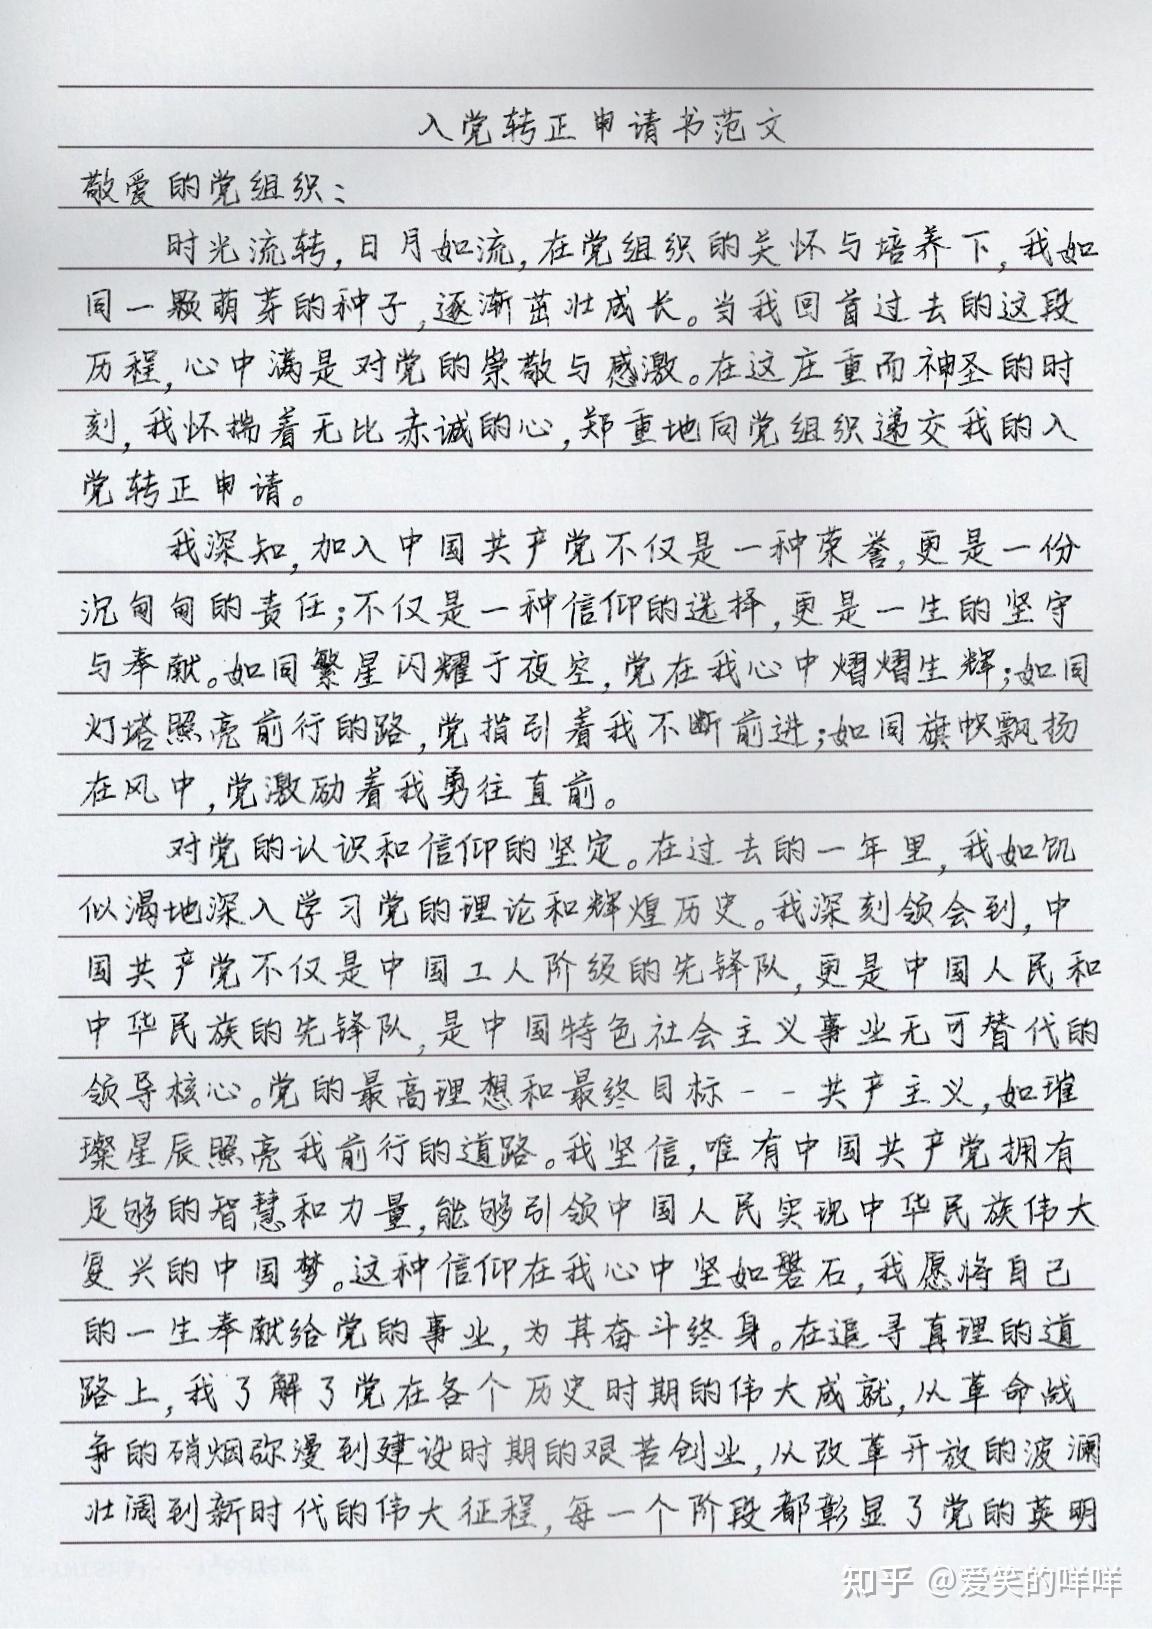 入党转正申请书范文
敬爱的党组织：
时光流转，日月如流，在党组织的关怀与培养下，我如
同一颗萌芽的种子，逐渐茁壮成长。当我回首过去的这段
历程，心中满是对党的崇敬与感激。在这庄重而神圣的时
刻，我怀揣着无比赤诚的心，郑重地向党组织递交我的入
党转正申请。
我深知，加入中国共产党不仅是一种荣誉，更是一份
沉甸甸的责任；不仅是一种信仰的选择，更是一生的坚守
与奉献。如同繁星闪耀于夜空，党在我心中熠熠生辉；如同
灯塔照亮前行的路，党指引着我不断前进；如同旗帜飘扬
在风中，党激励着我勇往直前。
对党的认识和信仰的坚定。在过去的一年里，我如饥
似渴地深入学习党的理论和辉煌历史。我深刻领会到，中
国共产党不仅是中国工人阶级的先锋队，更是中国人民和
中华民族的先锋队，是中国特色社会主义事业无可替代的
领导核心。党的最高理想和最终目标--共产主义，如璀
璨星辰照亮我前行的道路。我坚信，唯有中国共产党拥有
足够的智慧和力量，能够引领中国人民实现中华民族伟大
复兴的中国梦。这种信仰在我心中坚如磐石，我愿将自己
的一生奉献给党的事业，为其奋斗终身。在追寻真理的道
路上，我了解了党在各个历史时期的伟大成就，从革命战
争的硝烟弥漫到建设时期的艰苦创业，从改革开放的波澜
壮阔到新时代的伟大征程，每一个阶段都彰显了党的英明
知乎 @爱笑的咩咩